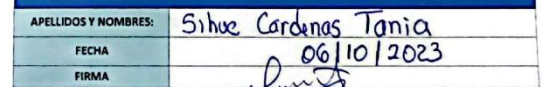 APELLIDOS Y NOMBRES: Sihue Cardenas Tania
FECHA 06/10/2023
FIRMA